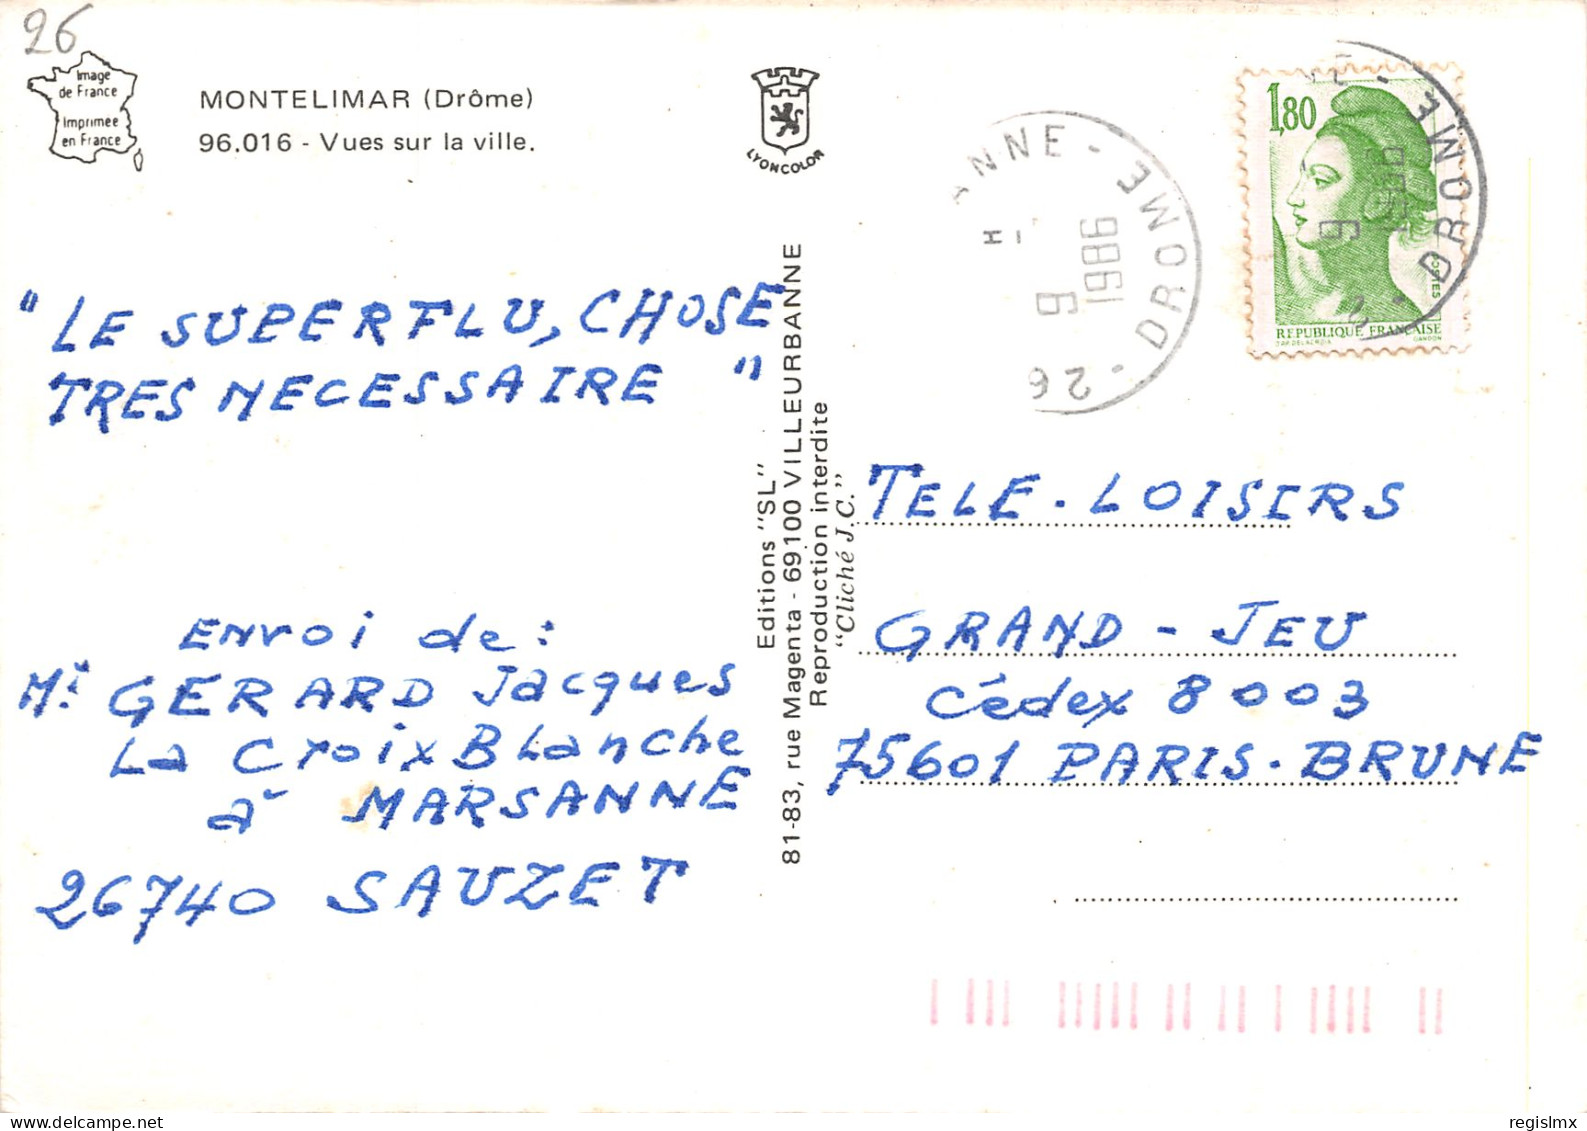 26
Image
de France
Imprimée
en France
MONTELIMAR (Drôme)
96.016 - Vues sur la ville.
LYONCOLOR
"LE SUPERFLU, CHOSE
TRES NECESSAIRE"
Envoi de:
Mr GERARD Jacques
La Croix Blanche
à MARSANNE
26740 SAUZET
Editions "SL"
81-83, rue Magenta - 69100 VILLEURBANNE
Reproduction interdite
"Cliché J.C."
ANNE - DROME - 26
H -
6
1986
1,80
POSTES
REPUBLIQUE FRANÇAISE
D'AP. DELACROIX
GANDON
E - DROME
6
TELE-LOISIRS
GRAND-JEU
Cédex 8003
75601 PARIS-BRUNE
regislmx